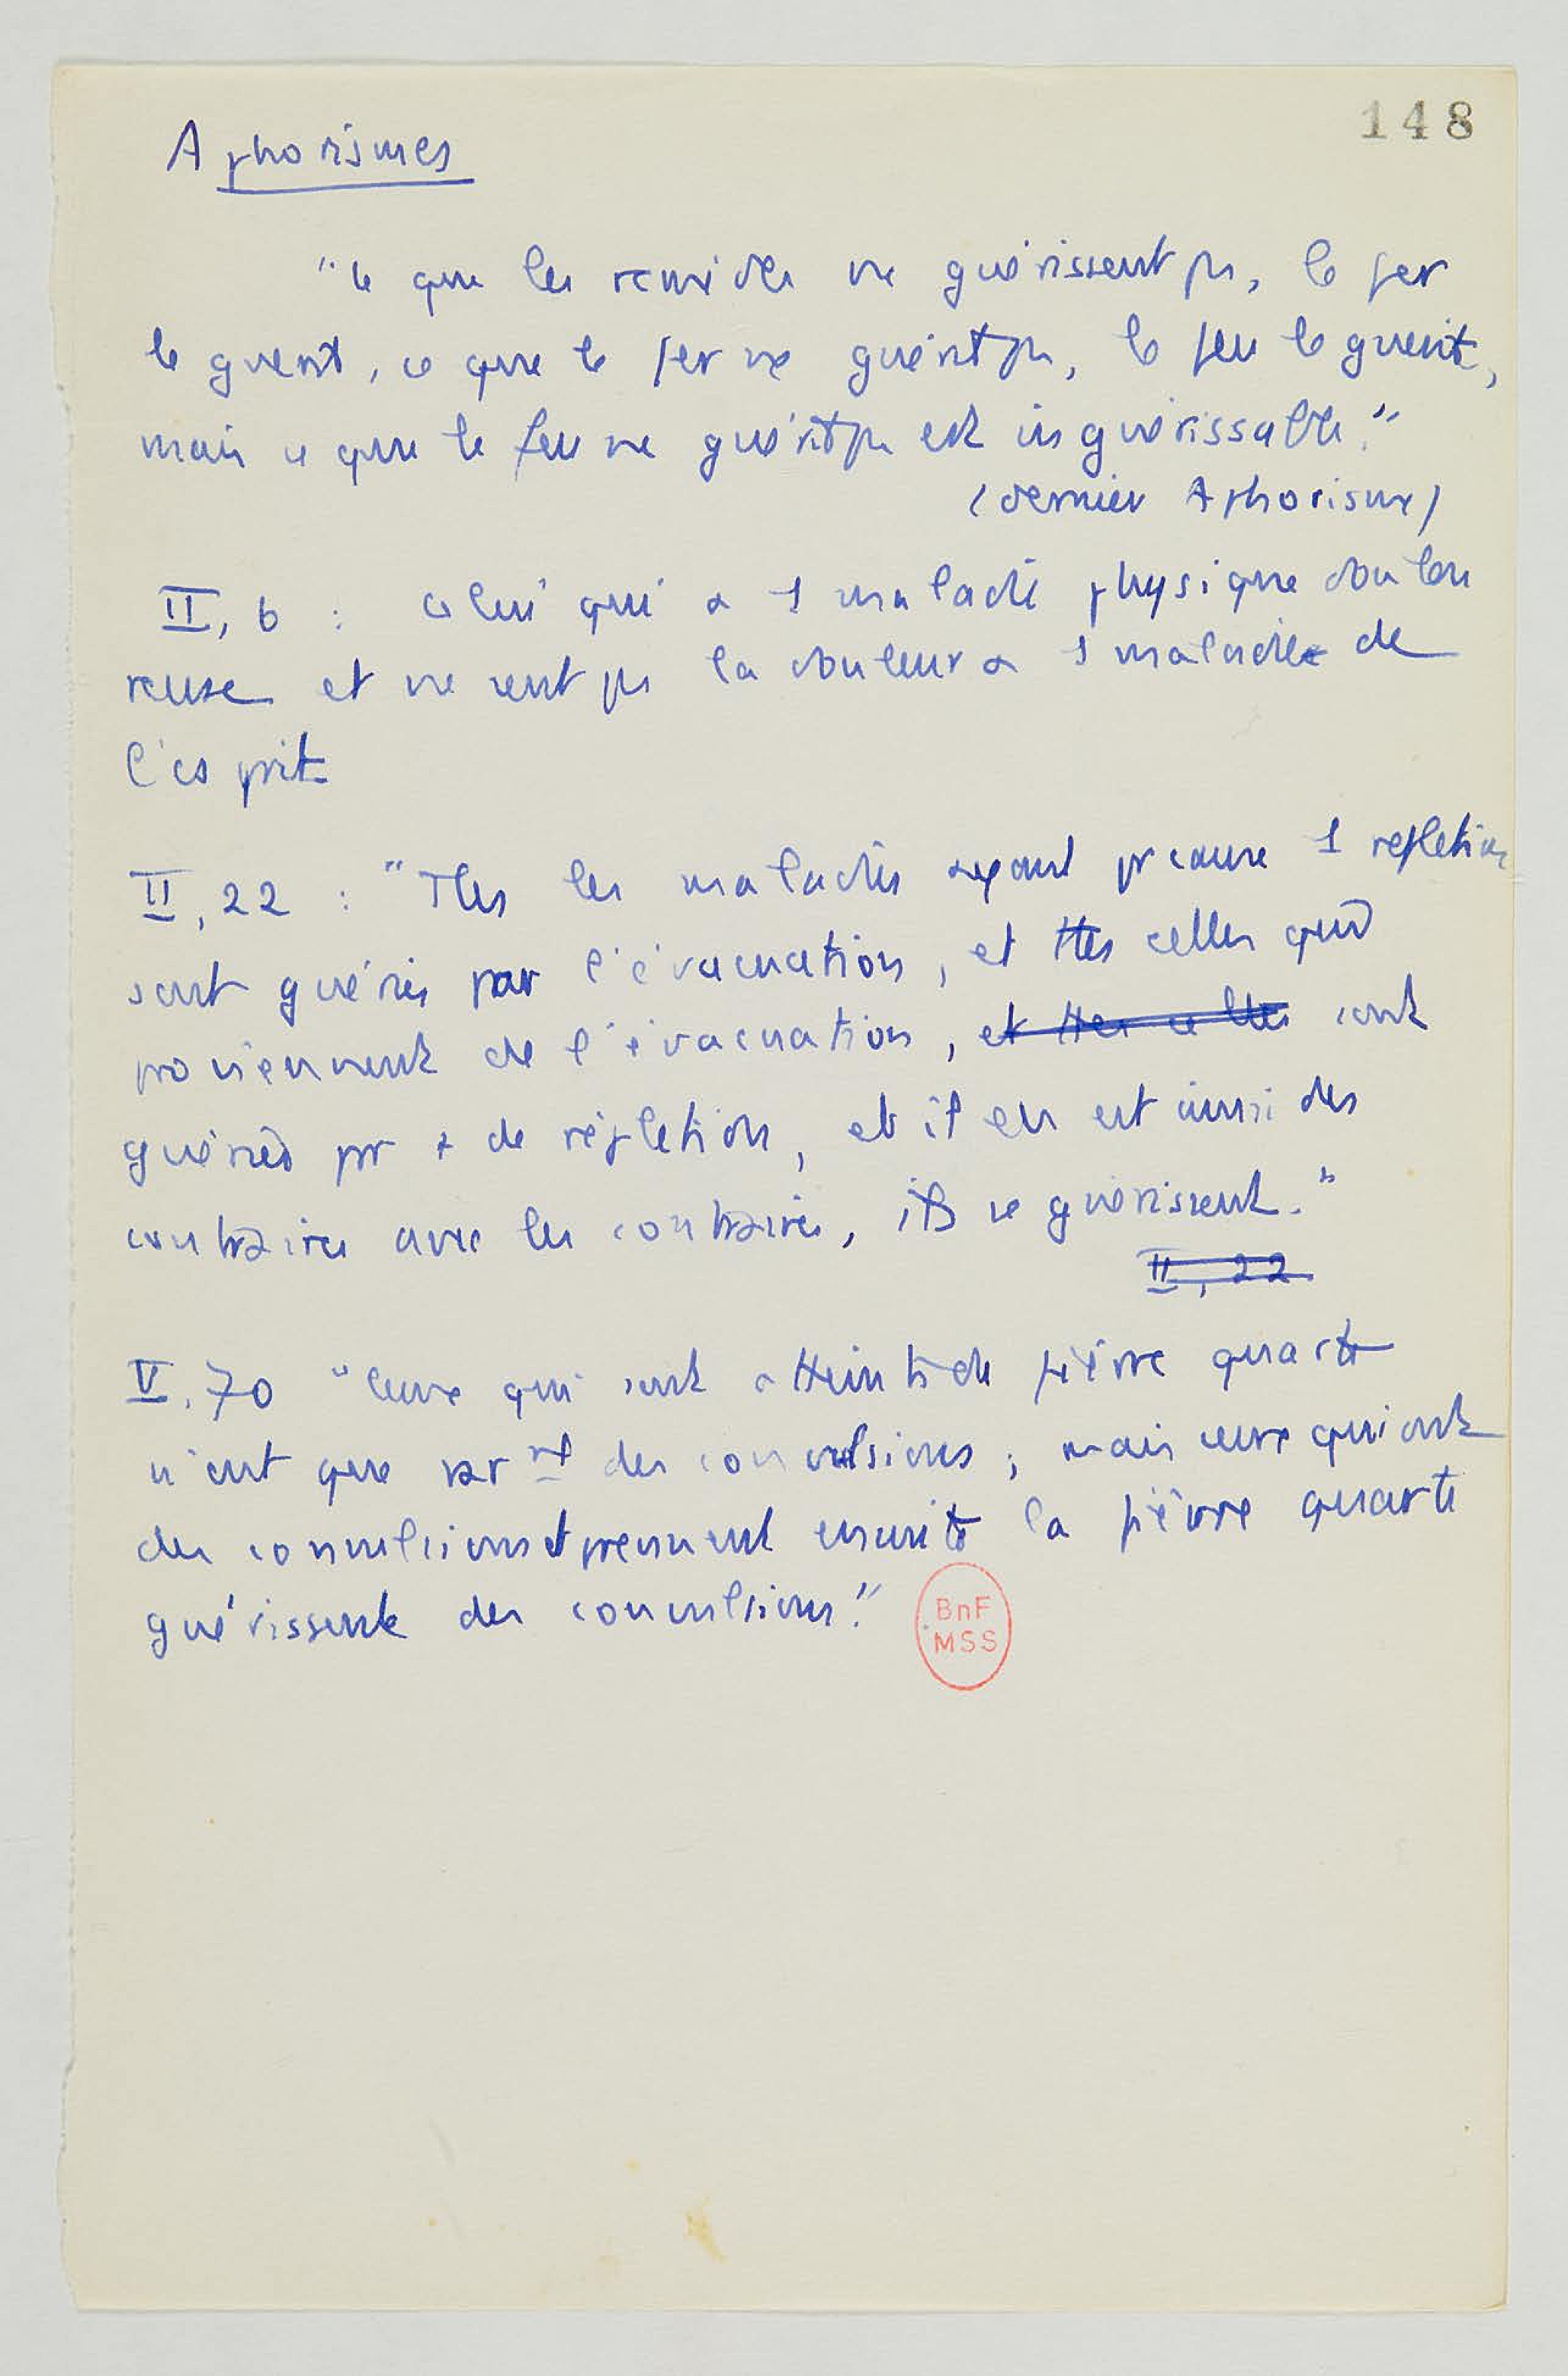 148
Aphorismes
"Ce que les remèdes ne guérissent pas, le fer
le guérit, ce que le fer ne guérit pas, le feu le guérit,
mais ce que le feu ne guérit pas est inguérissable."
(dernier Aphorisme)
II, 6 : celui qui a 1 maladie physique doulou
reuse et ne sent pas la douleur a 1 maladie de
l'esprit
II, 22 : "Ttes les maladies ayant pr cause 1 repletion
sont guéries par l'évacuation, et ttes celles qui
proviennent de l'évacuation, et ttes celles sont
guéries pr + de réplétion, et il en est ainsi des
contraires avec les contraires, ils se guérissent."
II, 22
V. 70 "Ceux qui sont atteints de fièvre quarte
n'ont que rarnt des convulsions ; mais ceux qui ont
des convulsions et prennent ensuite la fièvre quarte
guérissent des convulsions."
BnF
MSS